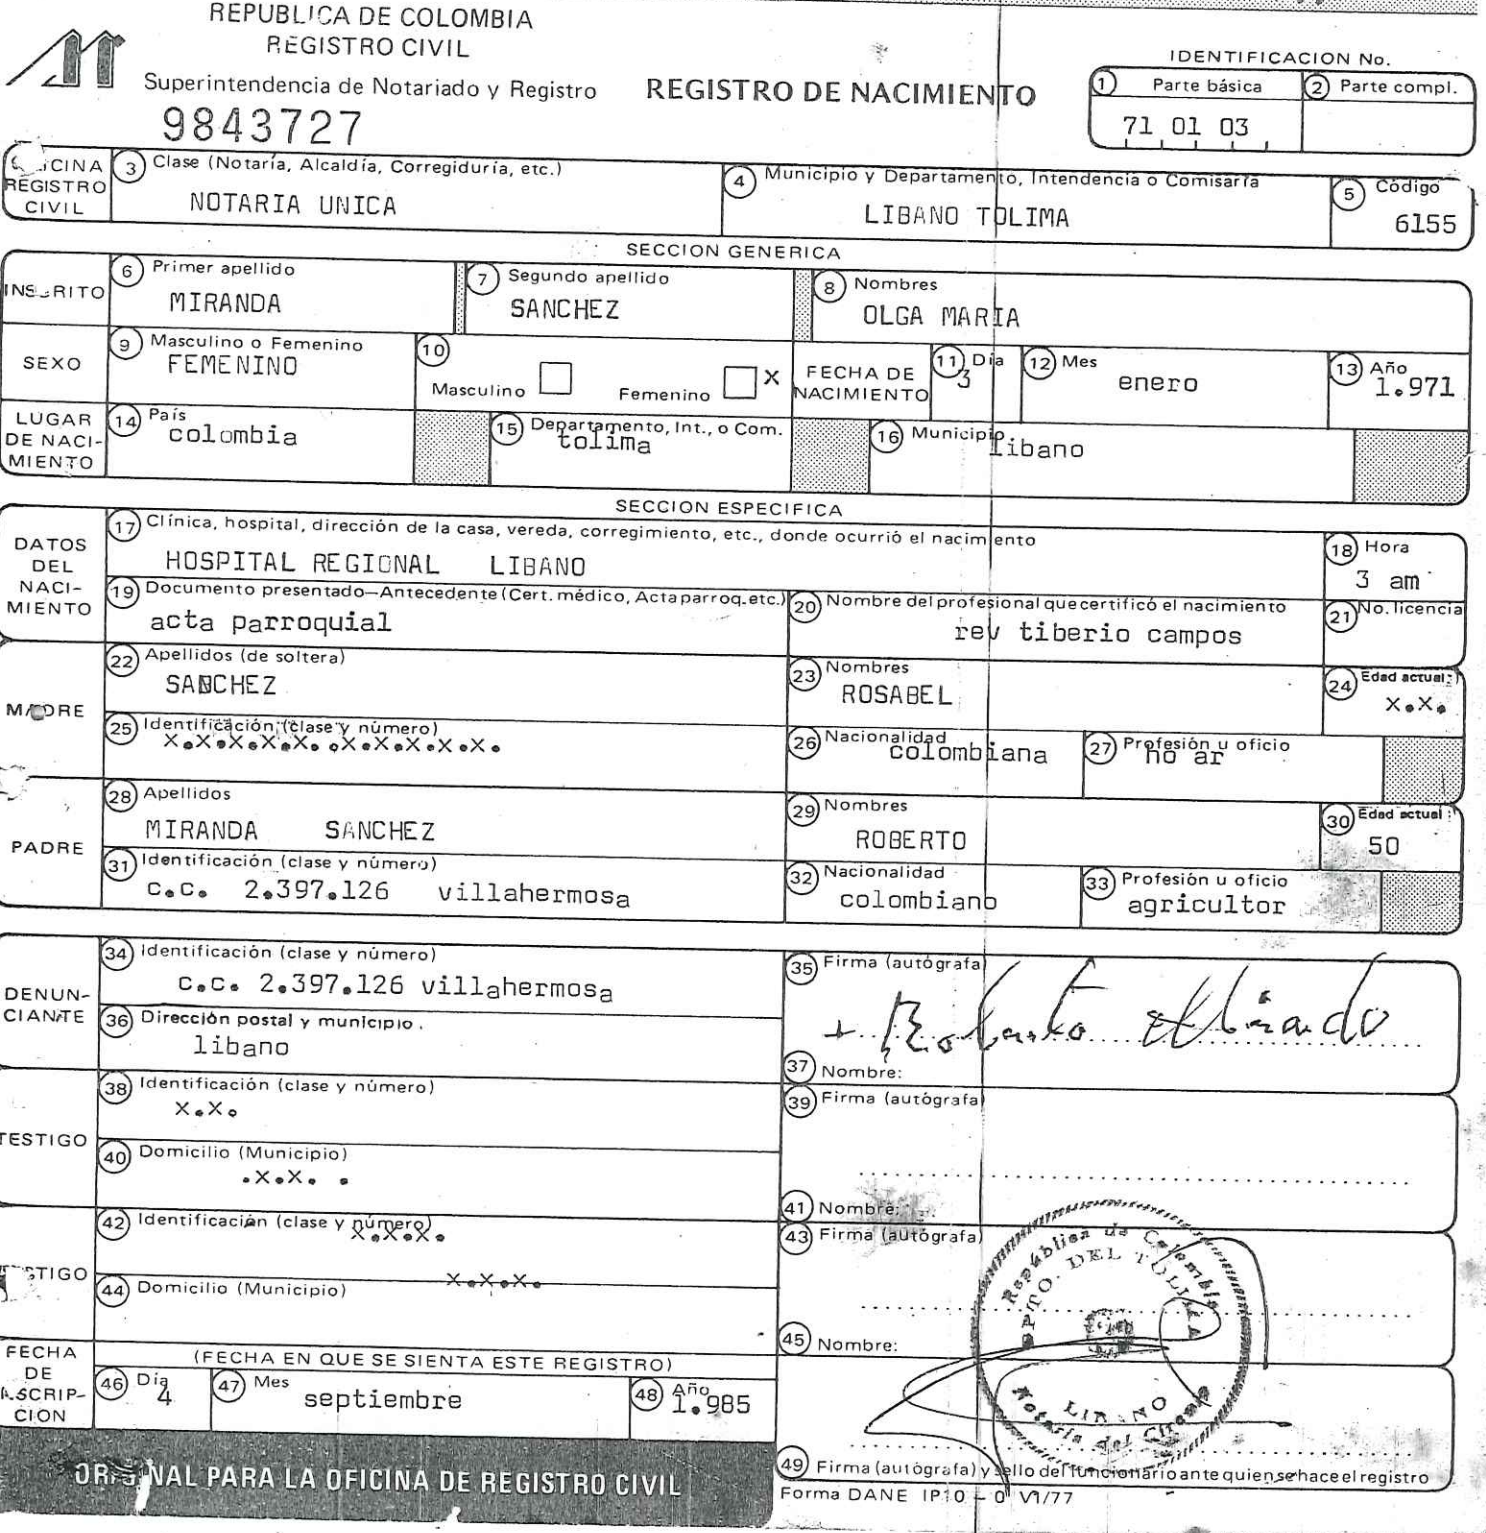 REPUBLICA DE COLOMBIA
REGISTRO CIVIL
Superintendencia de Notariado y Registro
REGISTRO DE NACIMIENTO
9843727
IDENTIFICACION No.
1 Parte básica
2 Parte compl.
71 01 03
REGISTRO
CIVIL
3 Clase (Notaría, Alcaldía, Corregiduría, etc.)
NOTARIA UNICA
4 Municipio y Departamento, Intendencia o Comisaría
LIBANO TOLIMA
5 Código
6155
SECCION GENERICA
6 Primer apellido
MIRANDA
7 Segundo apellido
SANCHEZ
8 Nombres
OLGA MARIA
SEXO
9 Masculino o Femenino
FEMENINO
10
Masculino
Femenino X
FECHA DE
NACIMIENTO
11 Día
3
12 Mes
enero
13 Año
1.971
LUGAR
DE NACI-
MIENTO
14 País
colombia
15 Departamento, Int., o Com.
tolima
16 Municipio
libano
SECCION ESPECIFICA
DATOS
DEL
NACI-
MIENTO
17 Clínica, hospital, dirección de la casa, vereda, corregimiento, etc., donde ocurrió el nacimiento
HOSPITAL REGIONAL LIBANO
18 Hora
3 am
19 Documento presentado—Antecedente (Cert. médico, Acta parroq. etc.)
acta parroquial
20 Nombre del profesional que certificó el nacimiento
rev tiberio campos
21 No. licencia
MADRE
22 Apellidos (de soltera)
SANCHEZ
23 Nombres
ROSABEL
24 Edad actual:
x.x.
25 Identificación (clase y número)
x.x.x.x.x. .x.x.x.x.x.
26 Nacionalidad
colombiana
27 Profesión u oficio
ho ar
PADRE
28 Apellidos
MIRANDA SANCHEZ
29 Nombres
ROBERTO
30 Edad actual:
50
31 Identificación (clase y número)
c.c. 2.397.126 villahermosa
32 Nacionalidad
colombiano
33 Profesión u oficio
agricultor
DENUN-
CIANTE
34 Identificación (clase y número)
c.c. 2.397.126 villahermosa
35 Firma (autógrafa)
+ Roberto Mirando
36 Dirección postal y municipio.
libano
37 Nombre:
TESTIGO
38 Identificación (clase y número)
x.x.
39 Firma (autógrafa)
40 Domicilio (Municipio)
.x.x. .
41 Nombre:
42 Identificación (clase y número)
x.x.x.
43 Firma (autógrafa)
44 Domicilio (Municipio)
x.x.x.
45 Nombre:
República de Colombia
DPTO. DEL TOLIMA
LIBANO
Notaría del Circulo
FECHA
DE
INSCRIP-
CION
(FECHA EN QUE SE SIENTA ESTE REGISTRO)
46 Día
4
47 Mes
septiembre
48 Año
1.985
49 Firma (autógrafa) y sello del funcionario ante quien se hace el registro
ORIGINAL PARA LA OFICINA DE REGISTRO CIVIL
Forma DANE IP10 - 0 VI/77